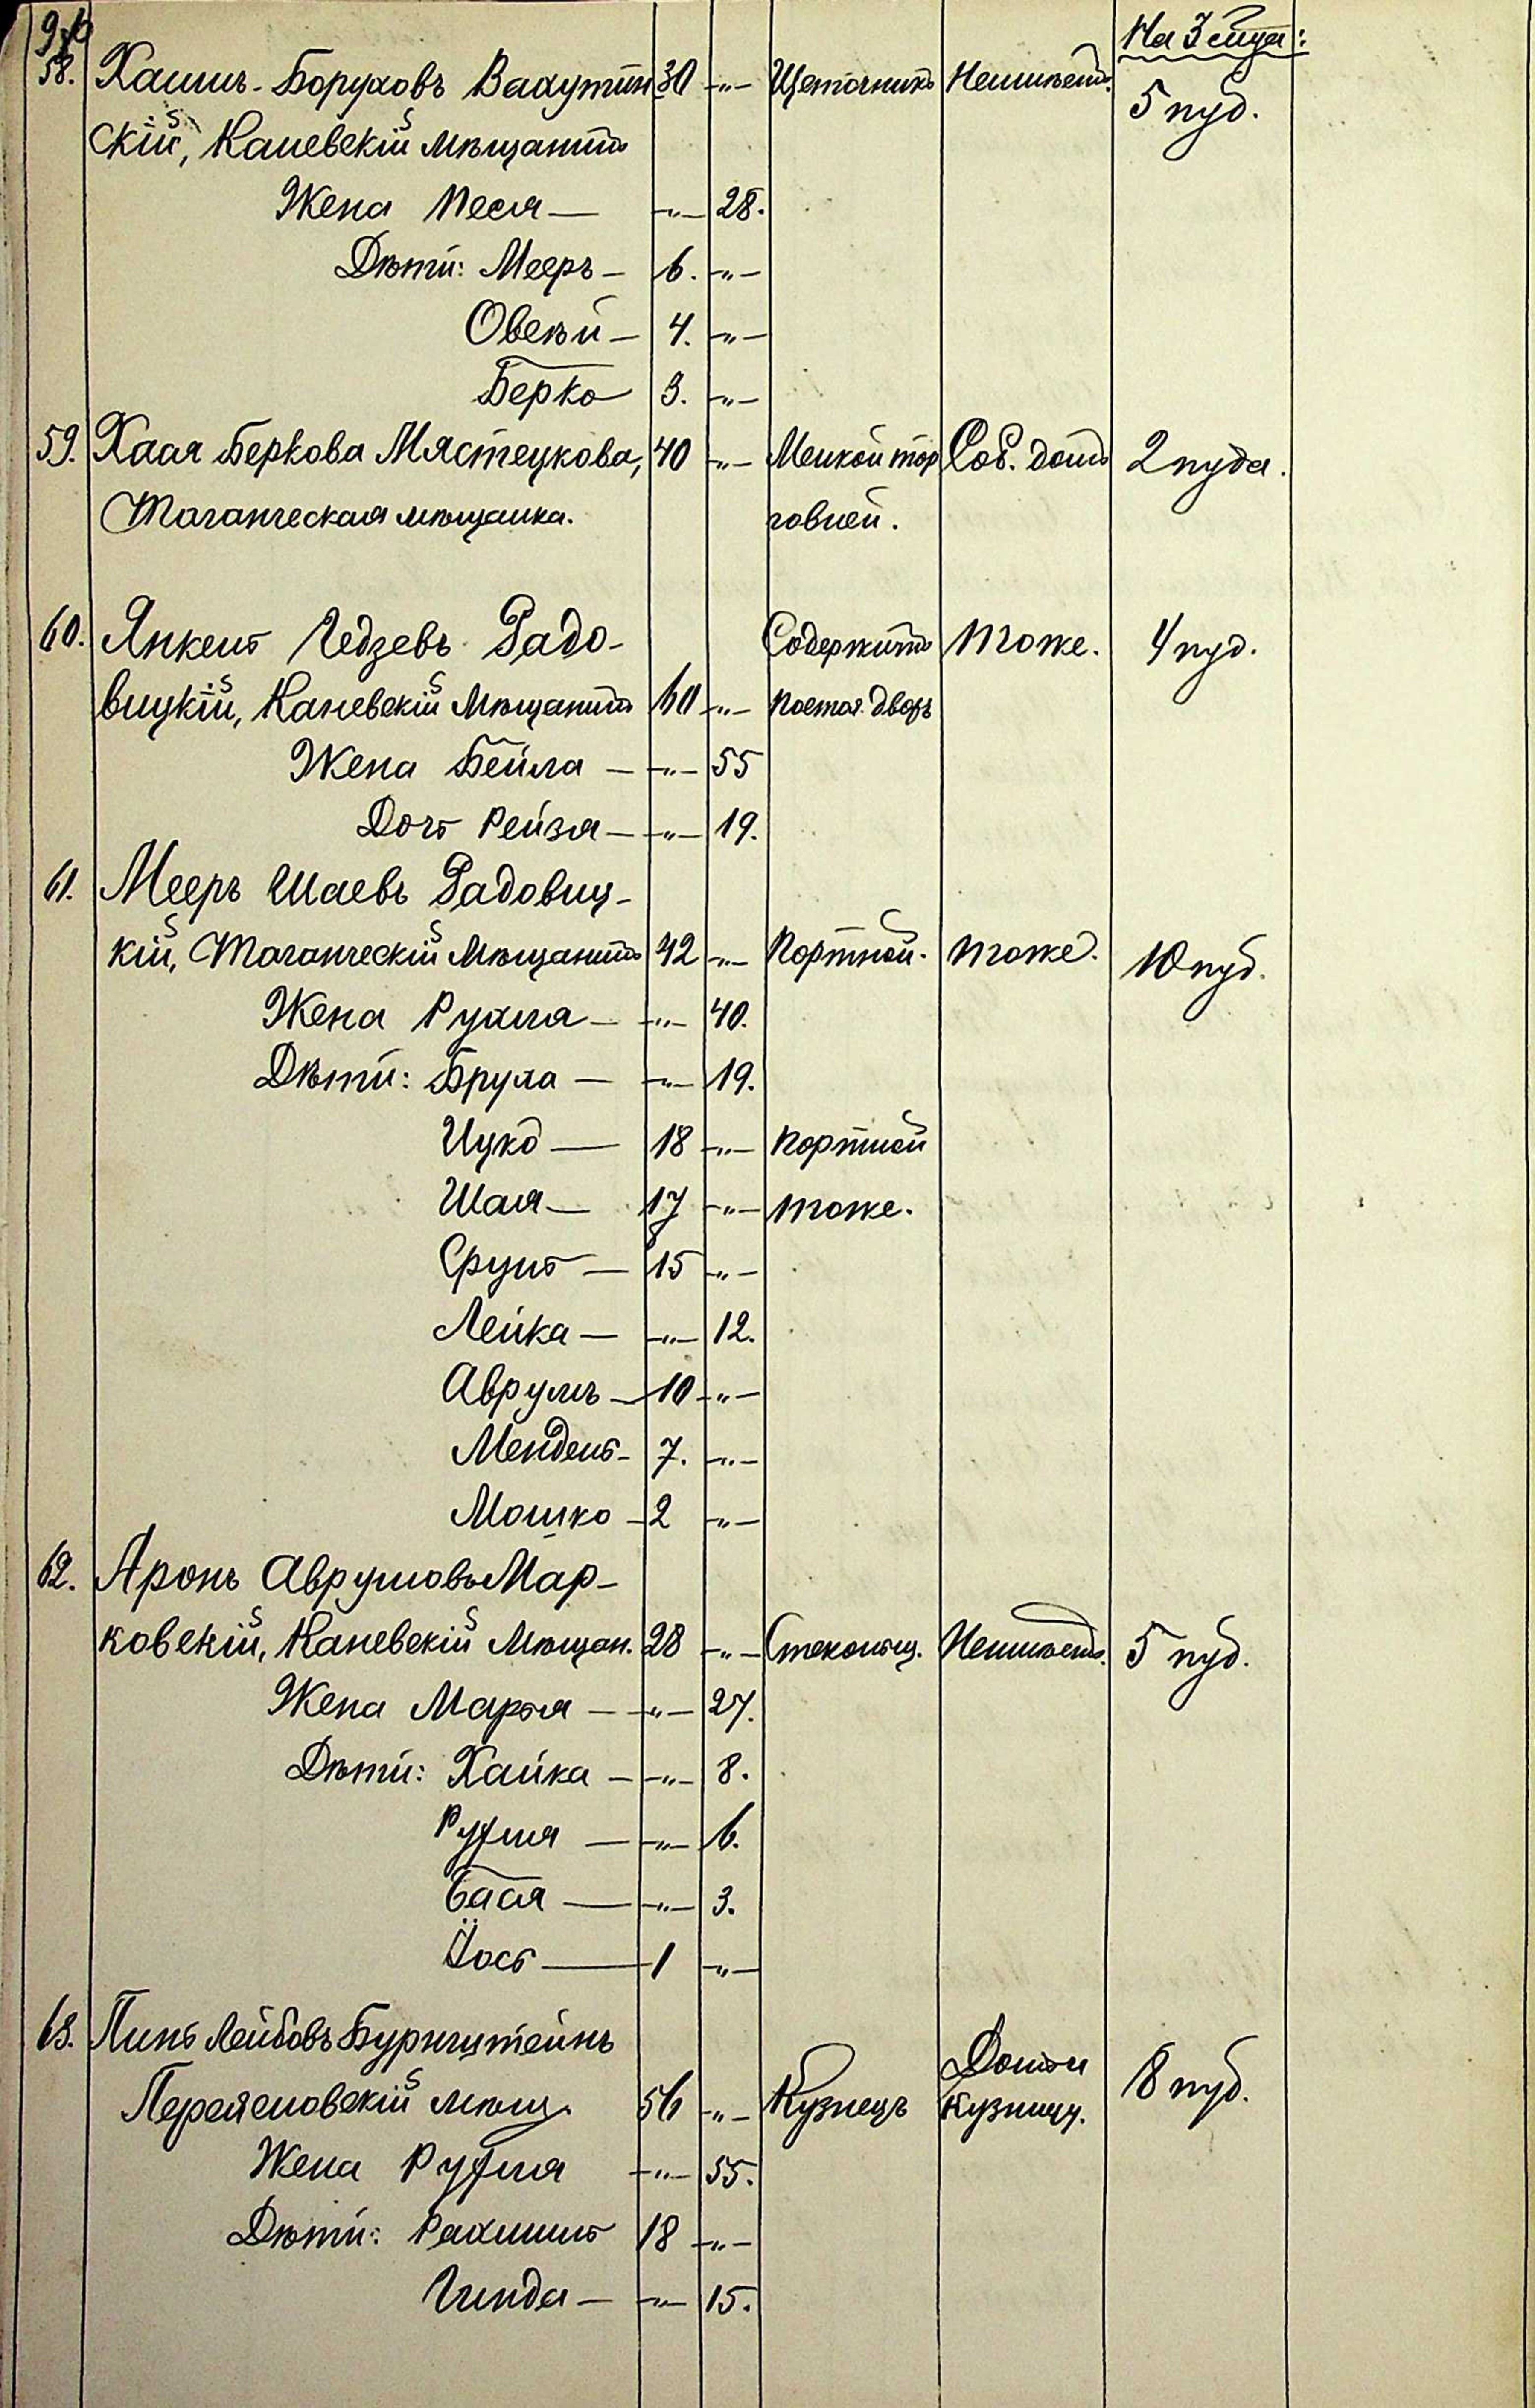 На 3 сыца:
58. Хаимъ-Боруховъ Вахутин 30 -"- Щеточникъ Неимѣетъ. 5 пуд.
скій, Каневскій мѣщанинъ
Жена Песя — -"- 28.
Дѣти: Мееръ — 6. -"-
Овсѣй — 4. -"-
Берко 3. -"-
59. Хася Беркова Мястецкова, 40 -"- Мелкой тор Соб. домъ 2 пуда.
Таганческая мѣщанка. говлей.
60. Янкель Гедзевъ Радо- Содержитъ Тоже. 4 пуд.
вицкій, Каневскій Мѣщанинъ 60 -"- постоя. дворъ
Жена Бейла — -"- 55
Дочь Рейзя — -"- 19.
61. Мееръ Шаевъ Радовиц-
кій, Таганческій Мѣщанинъ 42 -"- Портной. Тоже. 10 пуд.
Жена Рухля — -"- 40.
Дѣти: Бруха — -"- 19.
Ицко — 18 -"- Портной
Шая — 17 -"- Тоже.
Сруль — 15 -"-
Лейка — -"- 12.
Аврумъ — 10 -"-
Мендель — 7. -"-
Мошко — 2 -"-
62. Аронъ Аврумовъ Мар-
ковскій, Каневскій Мѣщан. 28 -"- Стекольщ. Неимѣетъ. 5 пуд.
Жена Марья — -"- 27.
Дѣти: Хайка — -"- 8.
Рухля — -"- 6.
Бася — -"- 3.
Йось — 1 -"-
63. Пинь Лейбовъ Бурнштейнъ
Переяславскій мѣщ. 56 -"- Кузнецъ Домъ и кузницу. 8 пуд.
Жена Рухля -"- 55.
Дѣти: Рахмиль 18 -"-
Гинда — -"- 15.